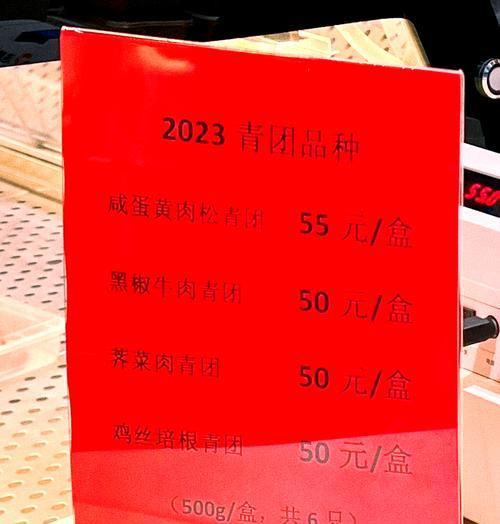 2023 青团品种
咸蛋黄肉松青团 55 元/盒
黑椒牛肉青团 50 元/盒
荠菜肉青团 50 元/盒
鸡丝培根青团 50 元/盒
（500g/盒，共 6 只）
550